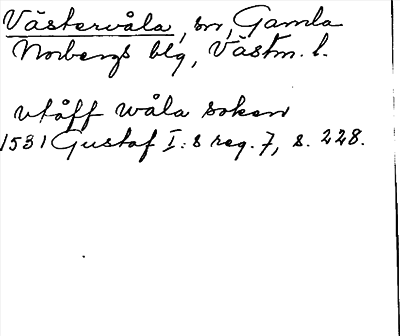 Västervåla, sn, Gamla
Norbergs blg, Västm. l.
vtåff wåla soken
1531 Gustaf I:s reg. 7, s. 228.